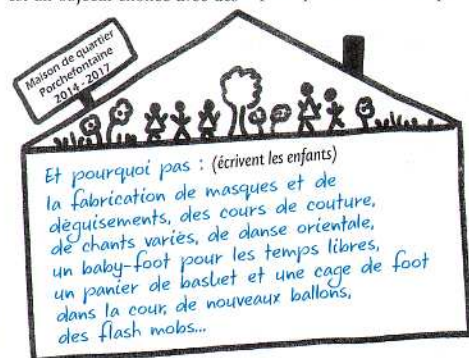 Maison de quartier
Porchefontaine
2014-2017
Et pourquoi pas : (écrivent les enfants)
la fabrication de masques et de
déguisements, des cours de couture,
de chants variés, de danse orientale,
un baby-foot pour les temps libres,
un panier de basket et une cage de foot
dans la cour, de nouveaux ballons,
des flash mobs...